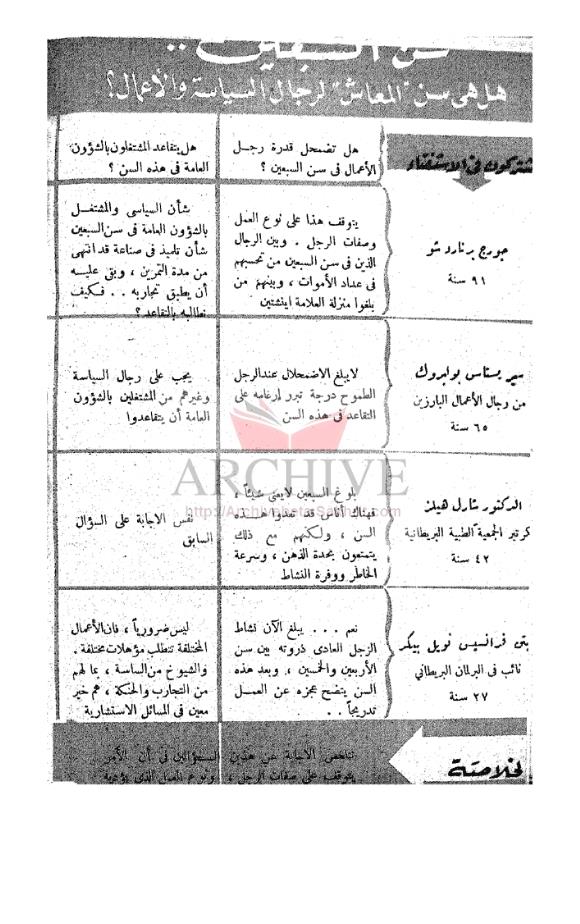 سن السبعين ..
هل هى سن "المعاش" لرجال السياسة والأعمال؟
شتركون فى الاستفتاء
هل تضمحل قدرة رجل
الأعمال فى سن السبعين ؟
هل يتقاعد المشتغلون بالشؤون
العامة فى هذه السن ؟
جورج برنارد شو
٩١ سنة
يتوقف هذا على نوع العمل
وصفات الرجل . وبين الرجال
الذين فى سن السبعين من تحسبهم
فى عداد الأموات ، وبينهم من
بلغوا منزلة العلامة اينشتين
شأن السياسى والمشتغل
بالشؤون العامة فى سن السبعين
شأن تلميذ فى صناعة قد انتهى
من مدة التمرين ، وبقى عليه
أن يطبق تجاربه . . فكيف
نطالبه بالتقاعد ؟
سير يستاس بولبروك
من رجال الأعمال البارزين
٦٥ سنة
لا يبلغ الاضمحلال عند الرجل
الطموح درجة تبرر إرغامه على
التقاعد فى هذه السن
يجب على رجال السياسة
وغيرهم من المشتغلين بالشؤون
العامة أن يتقاعدوا
الدكتور شارل هيلز
كرتير الجمعية الطبية البريطانية
٤٢ سنة
بلوغ السبعين لا يعنى شيئاً ،
فهناك أناس قد تعدوا هذه
السن ، ولكنهم مع ذلك
يتمتعون بحدة الذهن ، وسرعة
الخاطر ووفرة النشاط
نفس الاجابة على السؤال
السابق
ARCHIVE
http://Archivebeta.Sakhrit.com
بتى فرانسيس نويل بيكر
نائب فى البرلمان البريطانى
٢٧ سنة
نعم . . . يبلغ الآن نشاط
الرجل العادى ذروته بين سن
الأربعين والخمسين ، وبعد هذه
السن يتضح عجزه عن العمل
تدريجاً . .
ليس ضرورياً ، فان الأعمال
المختلفة تتطلب مؤهلات مختلفة .
والشيوخ من الساسة ، بما لهم
من التجارب والحنكة ، هم خير
معين فى المسائل الاستشارية
لخلاصة
تتلخص الاجابة عن هذين السؤالين فى أن الأمر
يتوقف على صفات الرجل ، ونوع العمل الذى يؤديه